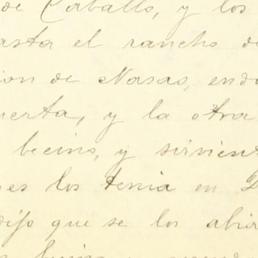 de Carballo, y los
asta el rancho de
ion de Nasas, end
uerta, y la otra
becino, y sirvient
es los tenia en D
dijo que se los abir